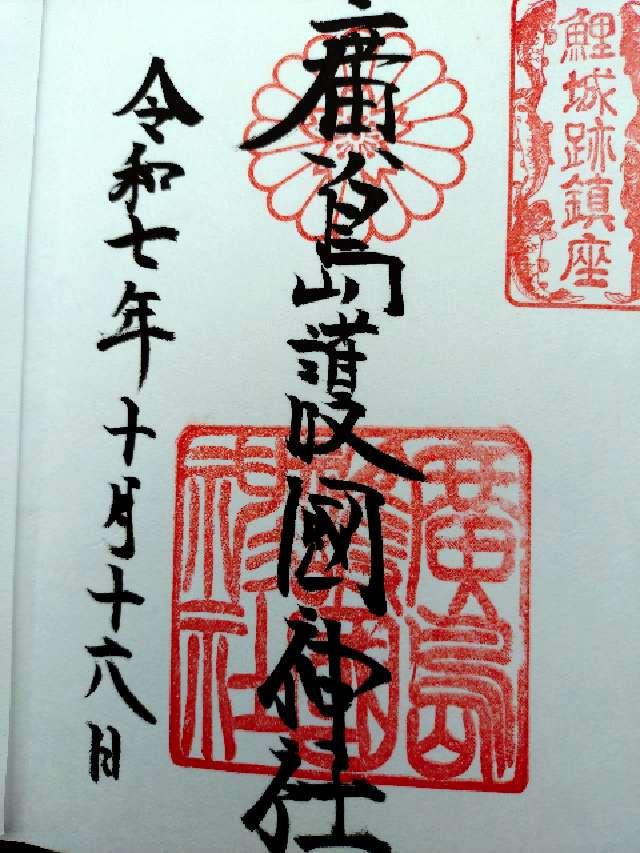 鯉城跡鎮座
廣島護國神社
廣島護國神社
令和七年十月十六日